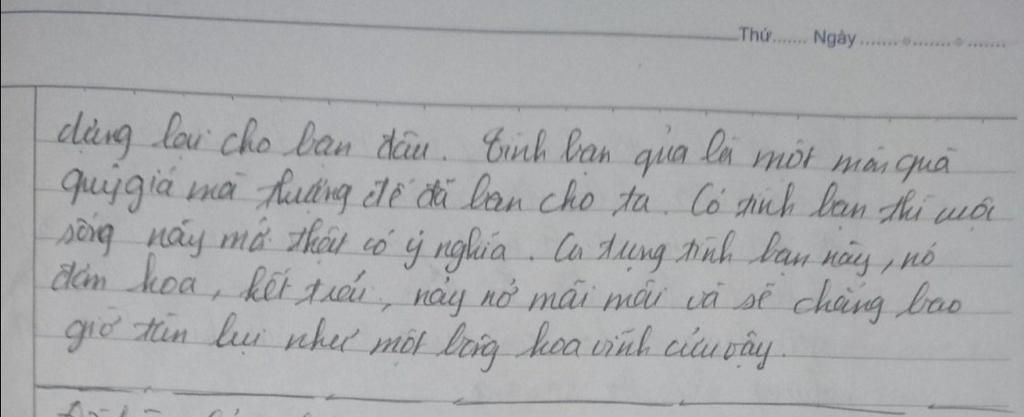 Thứ....... Ngày.......................
dừng lại cho bạn đâu. Tình bạn qủa là một món quà
quý giá mà thượng đế đã ban cho ta. Có tình bạn thì cuộc
sống này mớ thật có ý nghĩa. Ca tụng tình bạn này, nó
đơm hoa, kết trái, nảy nở mãi mãi và sẽ chẳng bao
giờ tàn lụi như một bông hoa vĩnh cửu vậy.